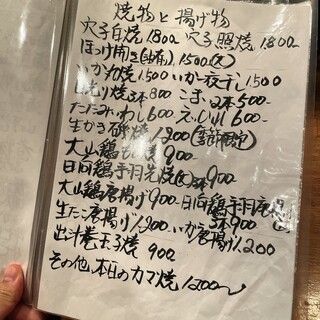 焼物と揚げ物
穴子白焼1800 穴子照焼1800
ほっけ開き(歯舞) 1500(大)
いか丸焼1,500 いか一夜干し1500
ししゃも 3本 800 こまい 2本500
たたみいわし600 えいひれ600
生かき磯焼 1200(季節限定)
大山鶏 焼 900
日向鶏手羽先焼(大)3本900
大山鶏唐揚げ900 日向鶏手羽唐
3本900
生たこ唐揚げ1,200 いか唐揚げ1200
出汁巻玉子焼 900
その他、本日のカマ焼 1200〜